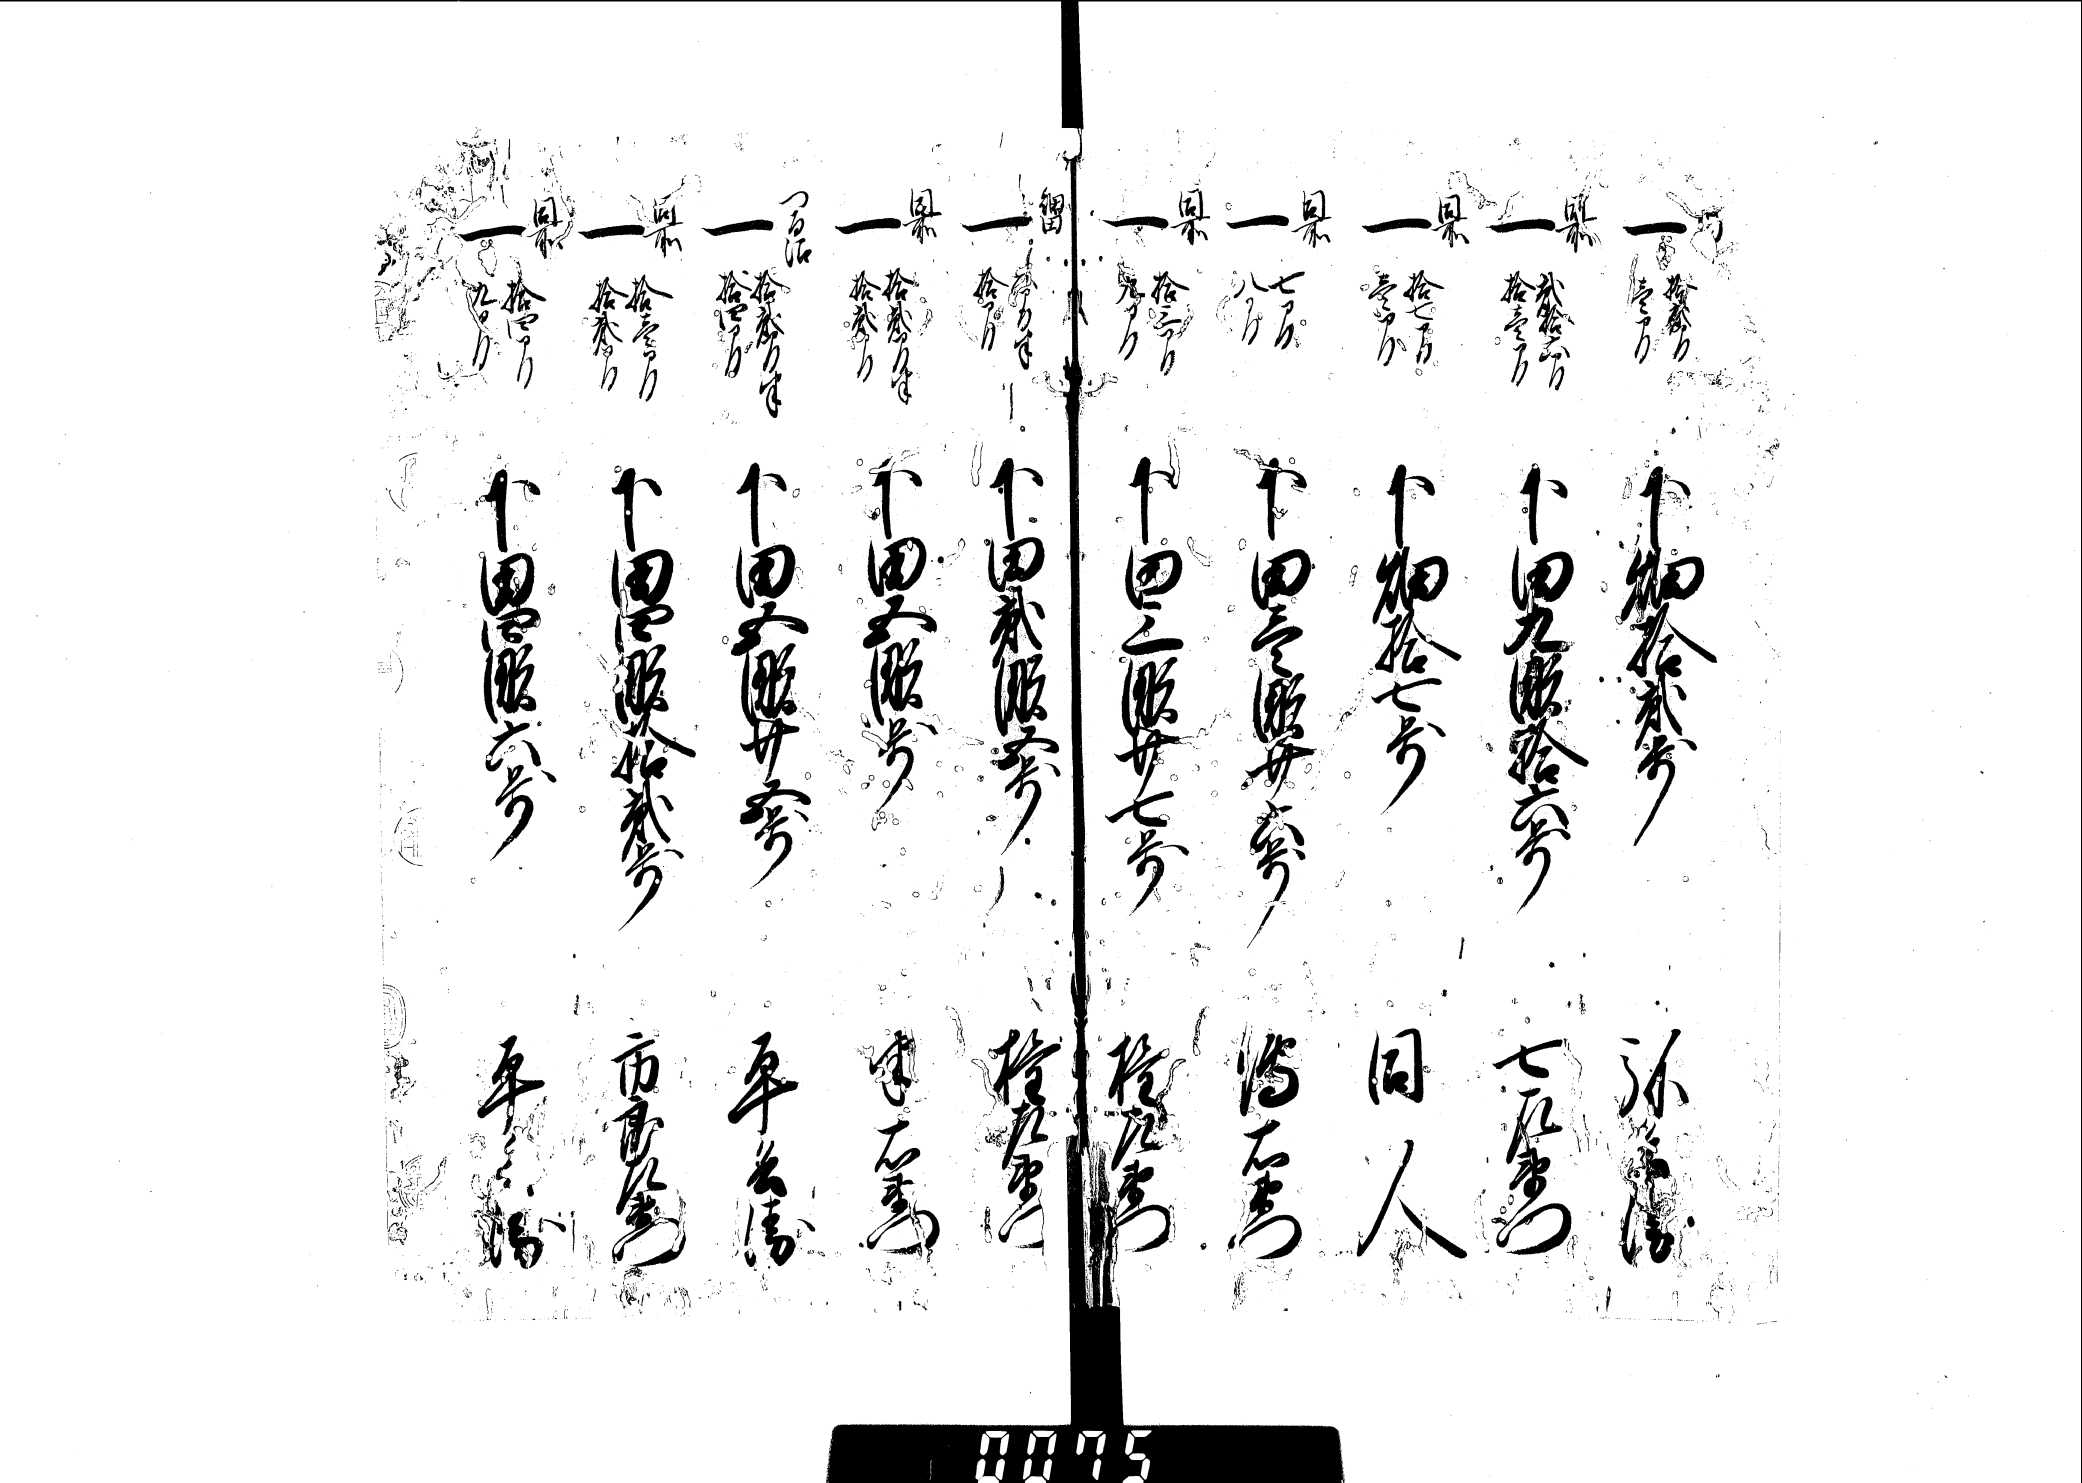 一 拾弐間 壱間 下畑拾弐歩
同所 一 弐拾六間 拾壱間 下田九畝拾六歩 七左衛門
同所 一 拾七間 壱間 下畑拾七歩 同人
同所 一 七間 八間 下田壱畝廿六歩 右衛門
同所 一 拾三間 九間 下田三畝廿七歩 権左衛門
一 拾間 下田弐畝五歩 権左衛門
同所 一 拾弐間半 拾弐間 下田五畝歩 半右衛門
一 拾弐間半 拾四間 下田五畝廿五歩 平兵衛
同所 一 拾壱間 拾弐間 下田四畝拾弐歩 市郎左衛門
同所 一 拾四間 九間 下田四畝六歩 平兵衛
0075